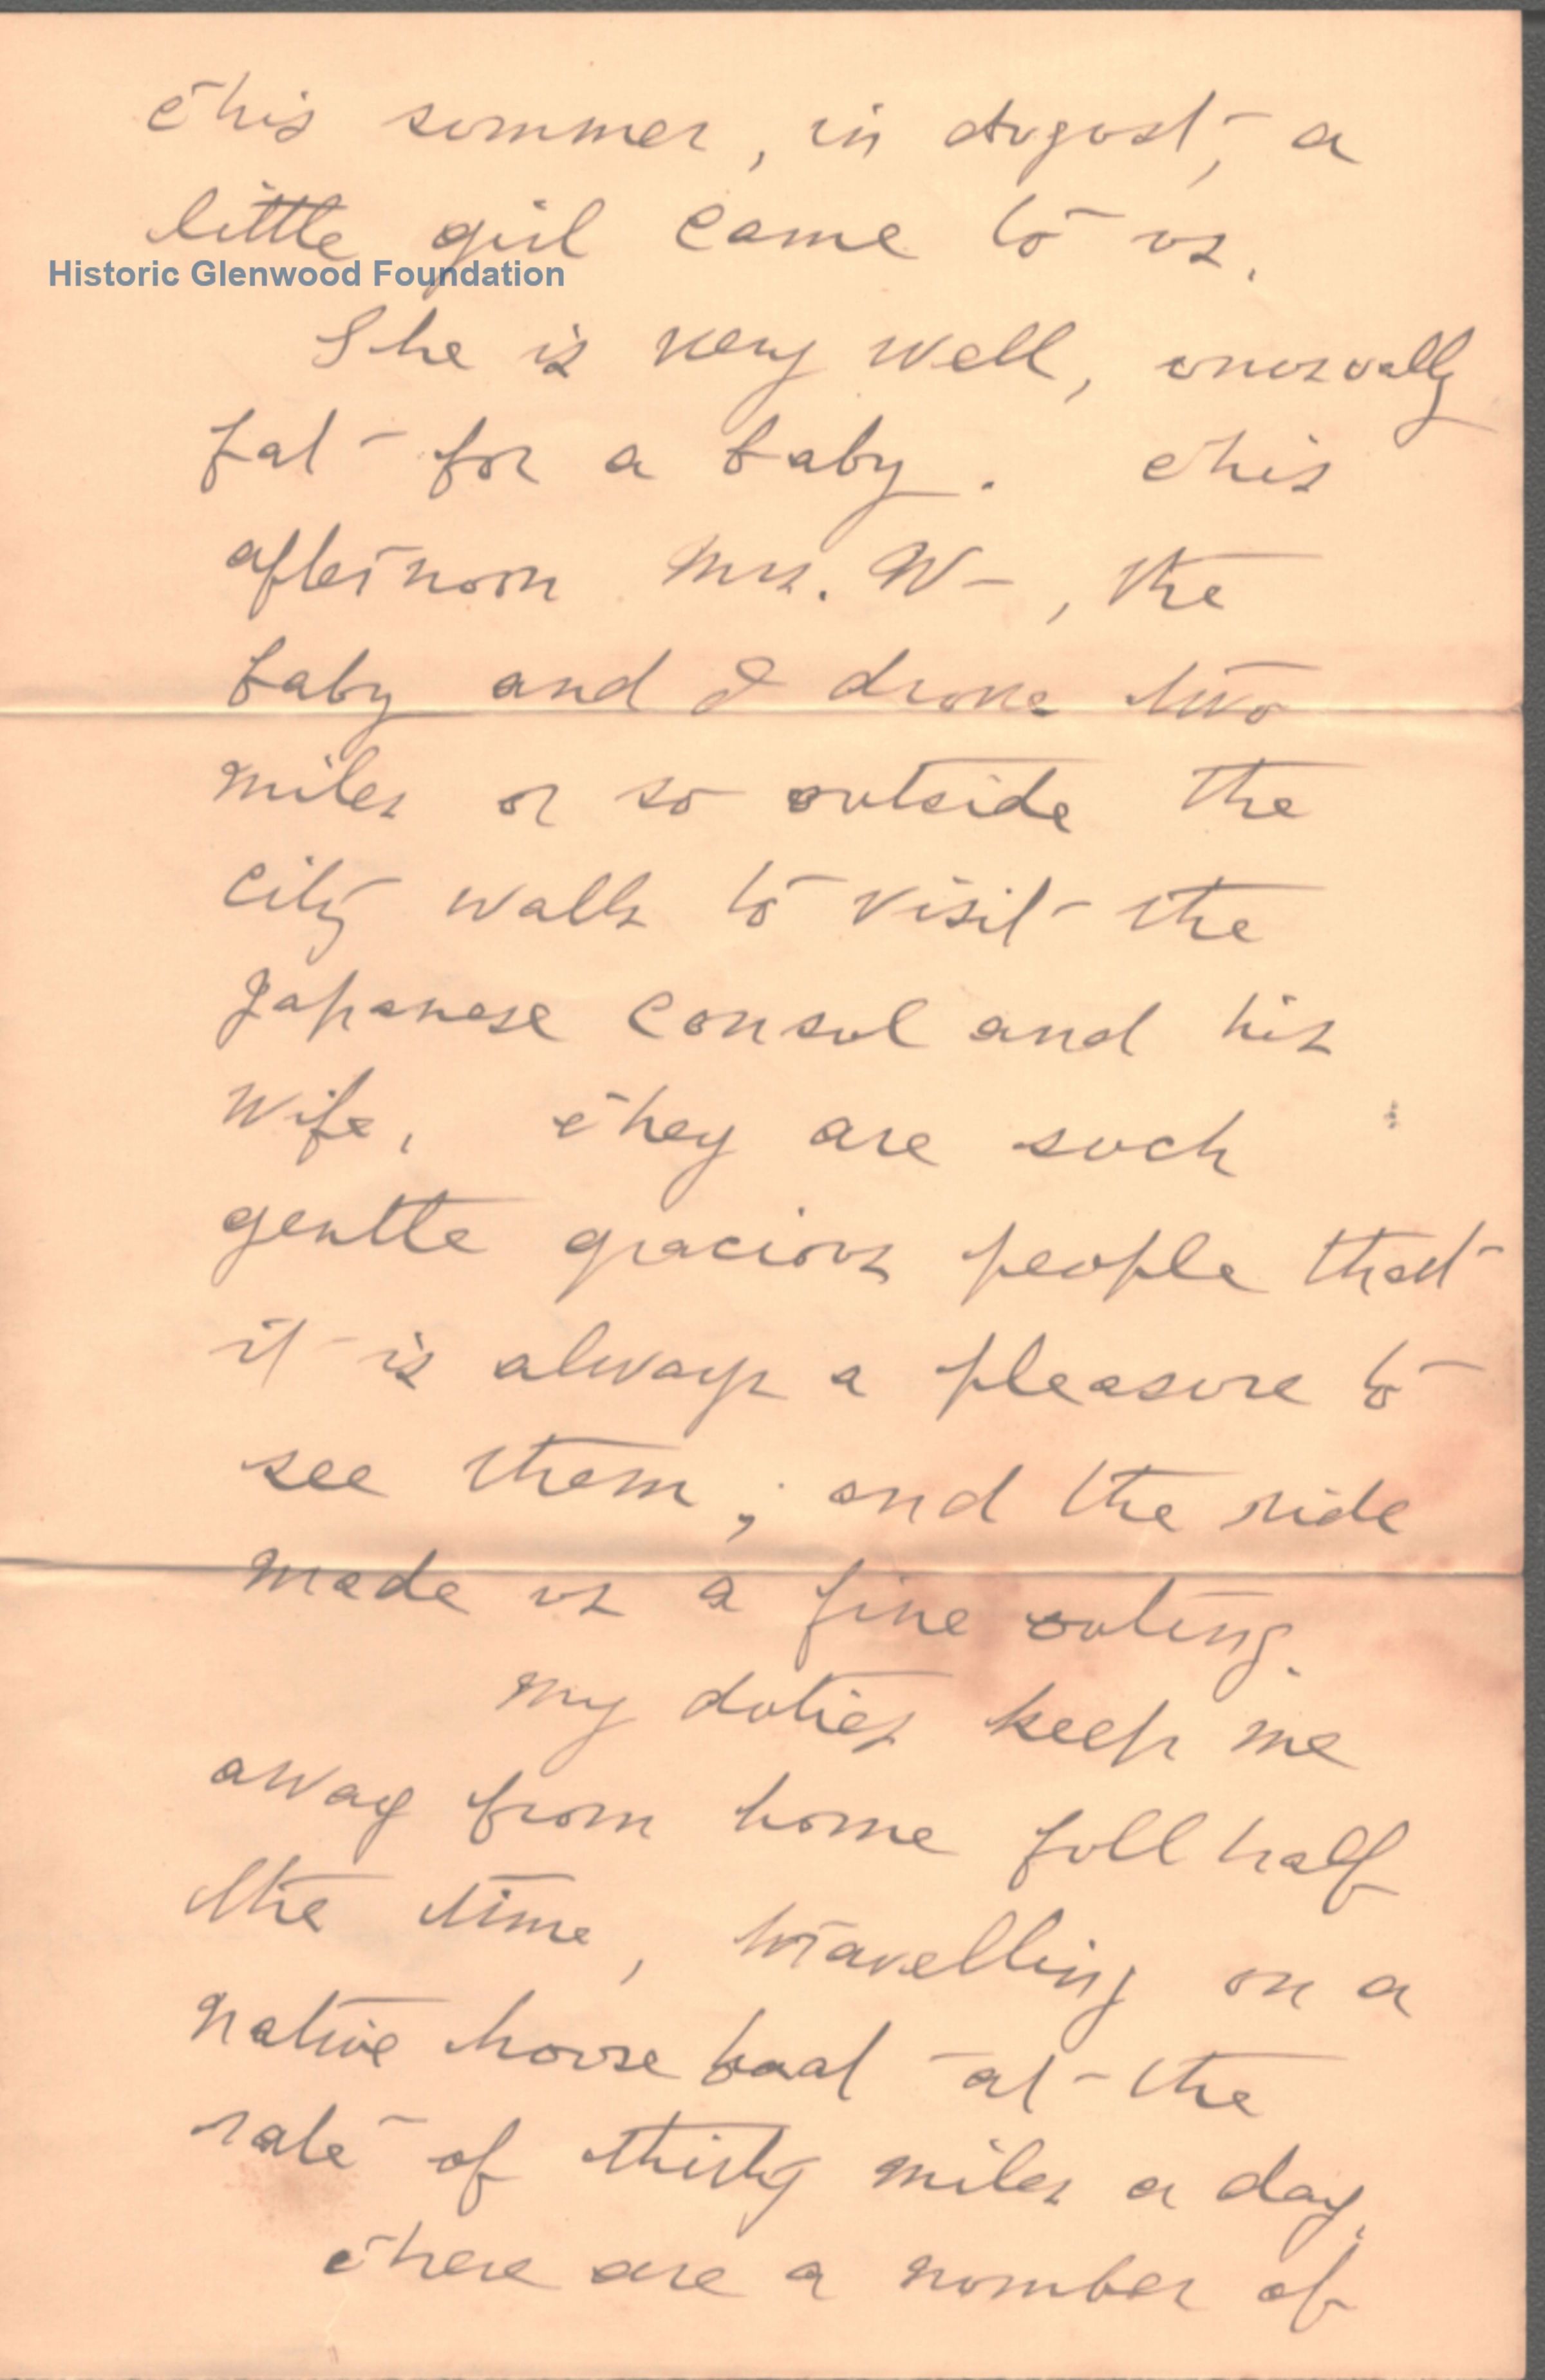 This summer, in August, a
little girl came to us.
Historic Glenwood Foundation
She is very well, unusually
fat for a baby. This
afternoon Mrs. W—, the
baby and I drove two
miles or so outside the
city walls to visit the
Japanese Consul and his
wife. They are such
gentle gracious people that
it is always a pleasure to
see them; and the ride
made us a fine outing.
My duties keep me
away from home full half
the time, travelling on a
native house boat at the
rate of thirty miles a day.
There are a number of